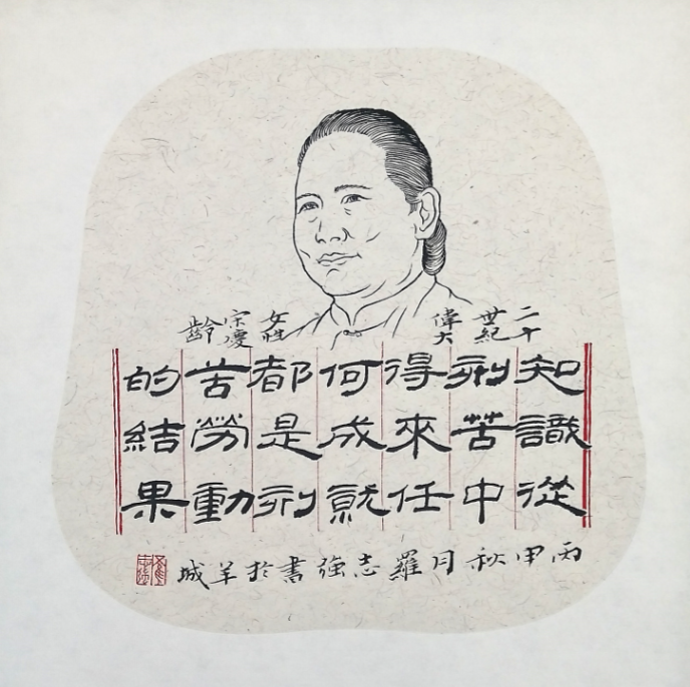 二十
世紀
偉大
女性
宋慶
齡
知識從
刻苦中
得來任
何成就
都是刻
苦勞動
的結果
丙申秋月羅志強書於羊城